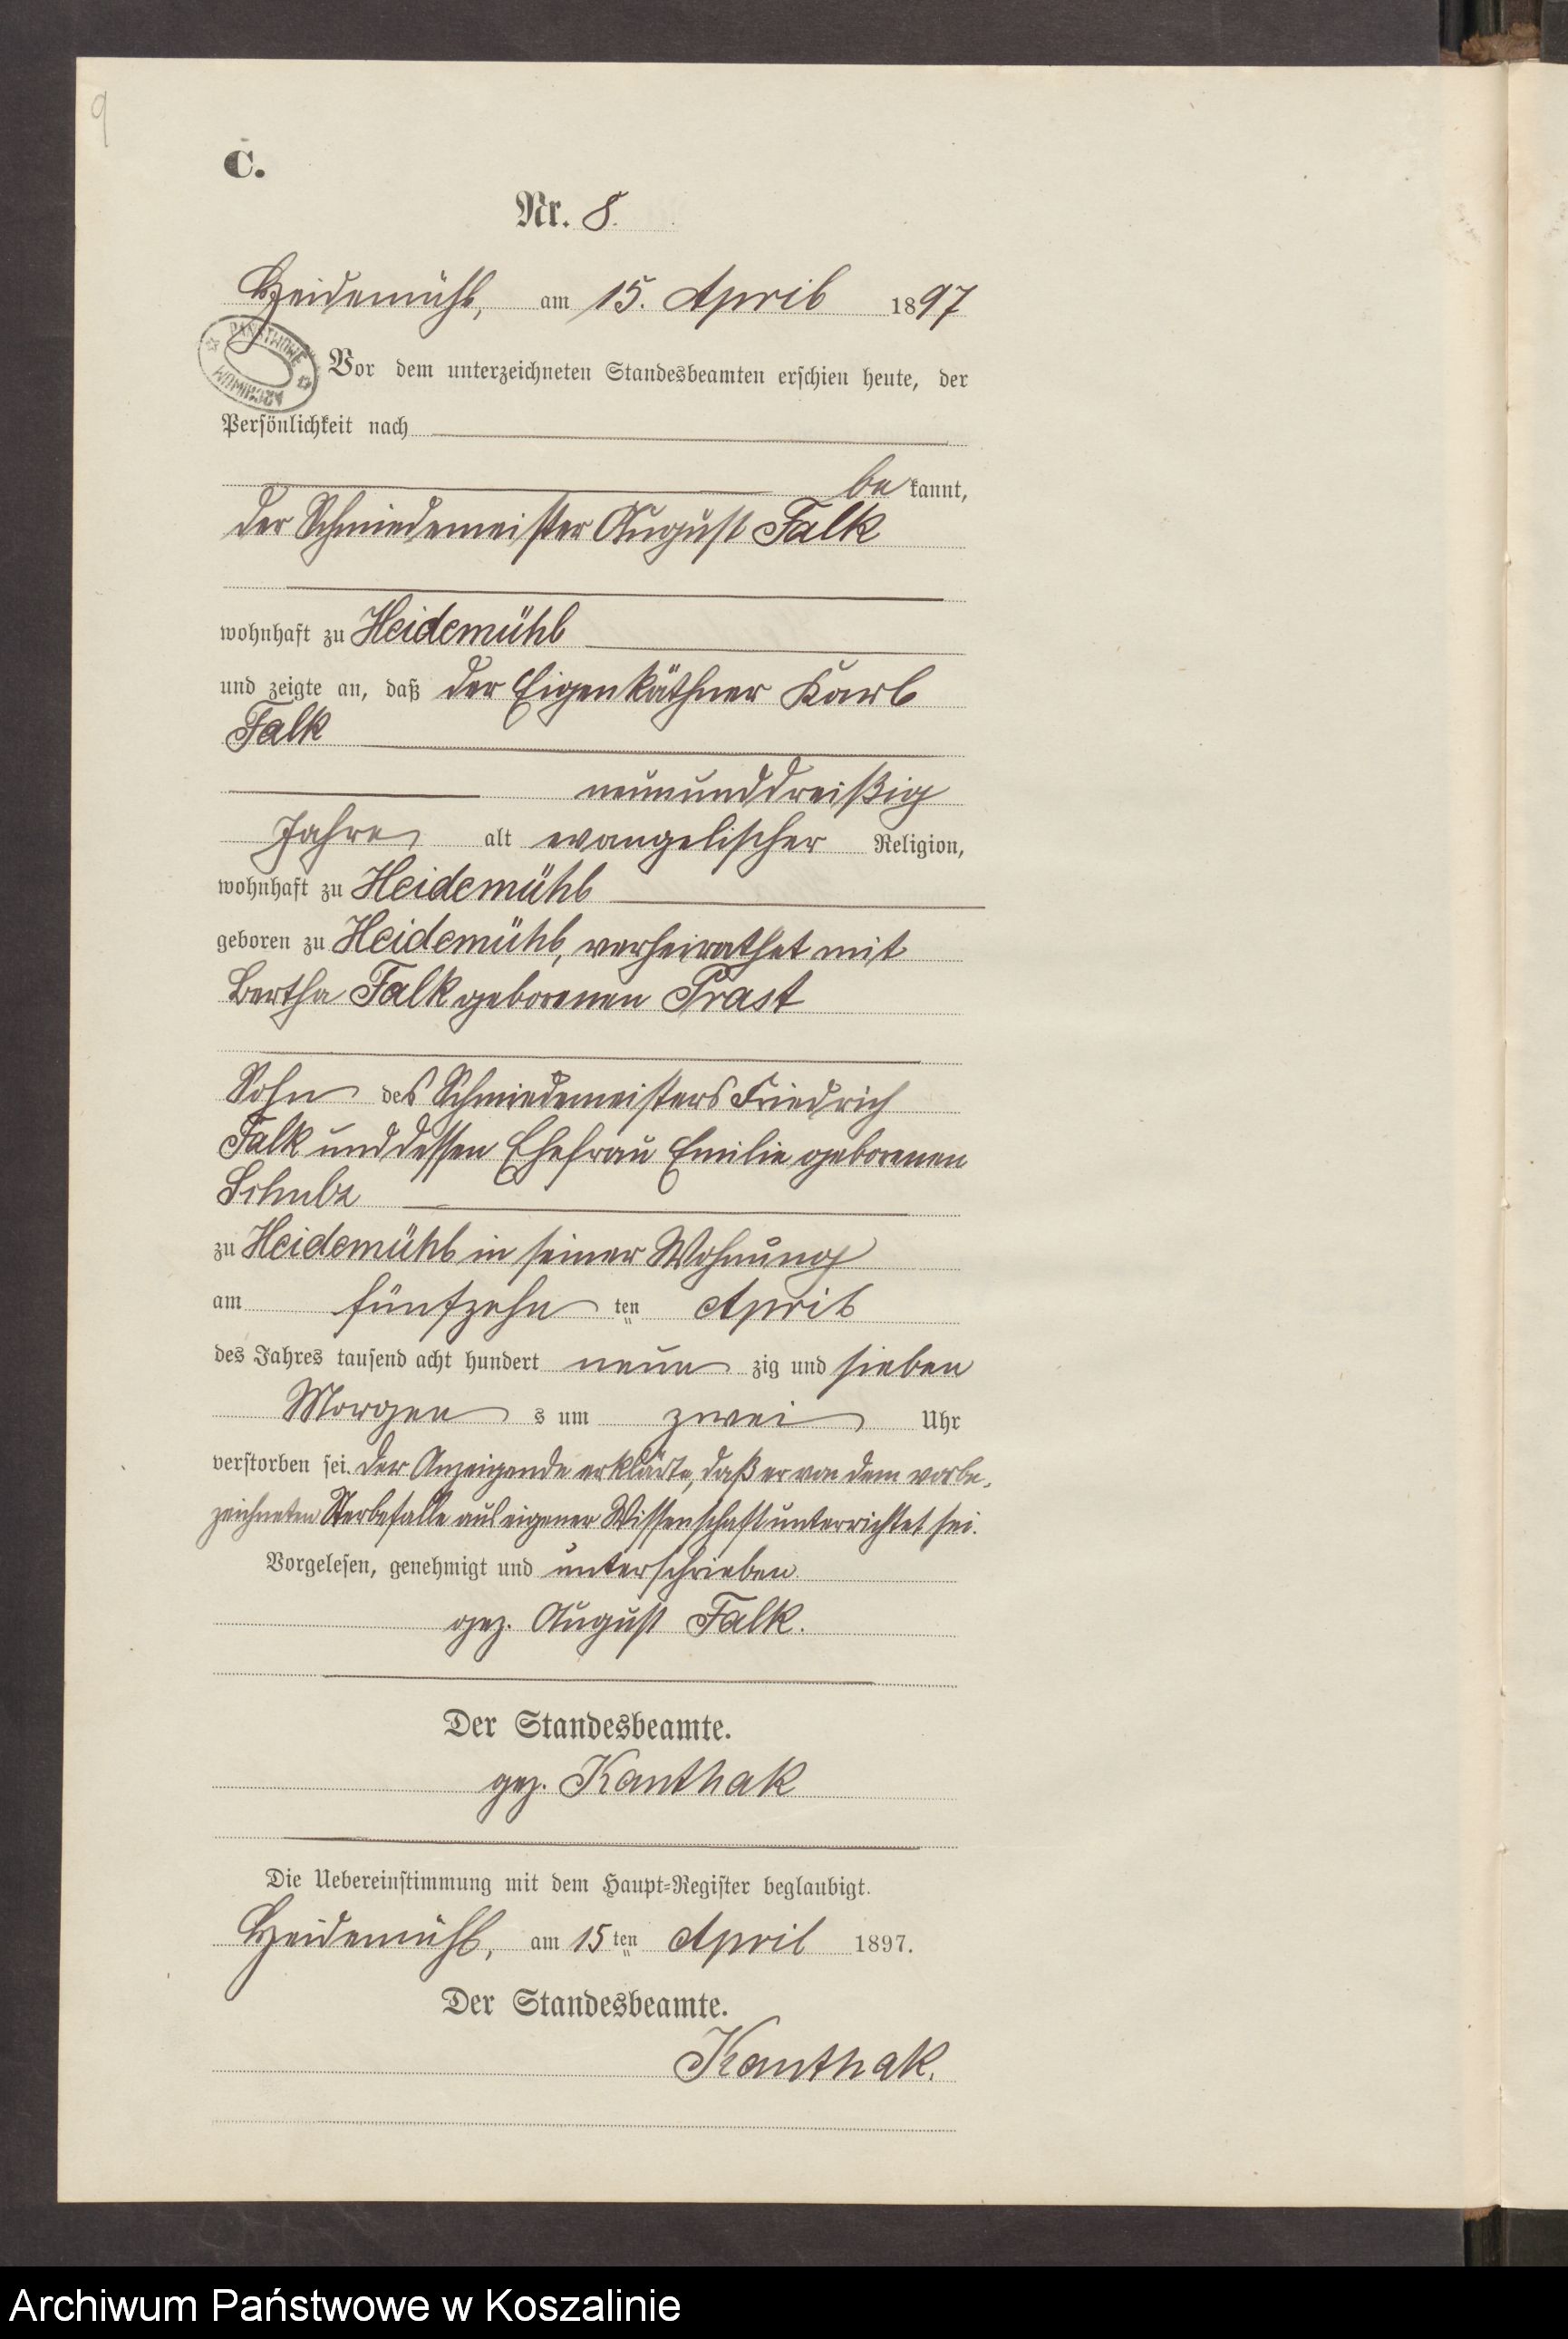 9
C.
Nr. 8.
Heidemühl, am 15. April 1897
PAŃSTWOWE
ARCHIWUM
Vor dem unterzeichneten Standesbeamten erschien heute, der
Persönlichkeit nach
be kannt,
der Schmiedemeister August Falk
wohnhaft zu Heidemühl
und zeigte an, daß der Eigenkäthner Karl
Falk
neununddreißig
Jahre alt evangelischer Religion,
wohnhaft zu Heidemühl
geboren zu Heidemühl, verheirathet mit
Bertha Falk geborenen Prast
Sohn des Schmiedemeisters Friedrich
Falk und dessen Ehefrau Emilie geborenen
Schulz
zu Heidemühl in seiner Wohnung
am fünfzehn ten April
des Jahres tausend acht hundert neun zig und sieben
Morgen s um zwei Uhr
verstorben sei. Der Anzeigende erklärte, daß er von dem vorbe-
zeichneten Sterbefalle aus eigener Wissenschaft unterrichtet sei.
Vorgelesen, genehmigt und unterschrieben
gez. August Falk.
Der Standesbeamte.
gez. Kanthak
Die Uebereinstimmung mit dem Haupt-Register beglaubigt.
Heidemühl, am 15 ten April 1897.
Der Standesbeamte.
Kanthak.
Archiwum Państwowe w Koszalinie